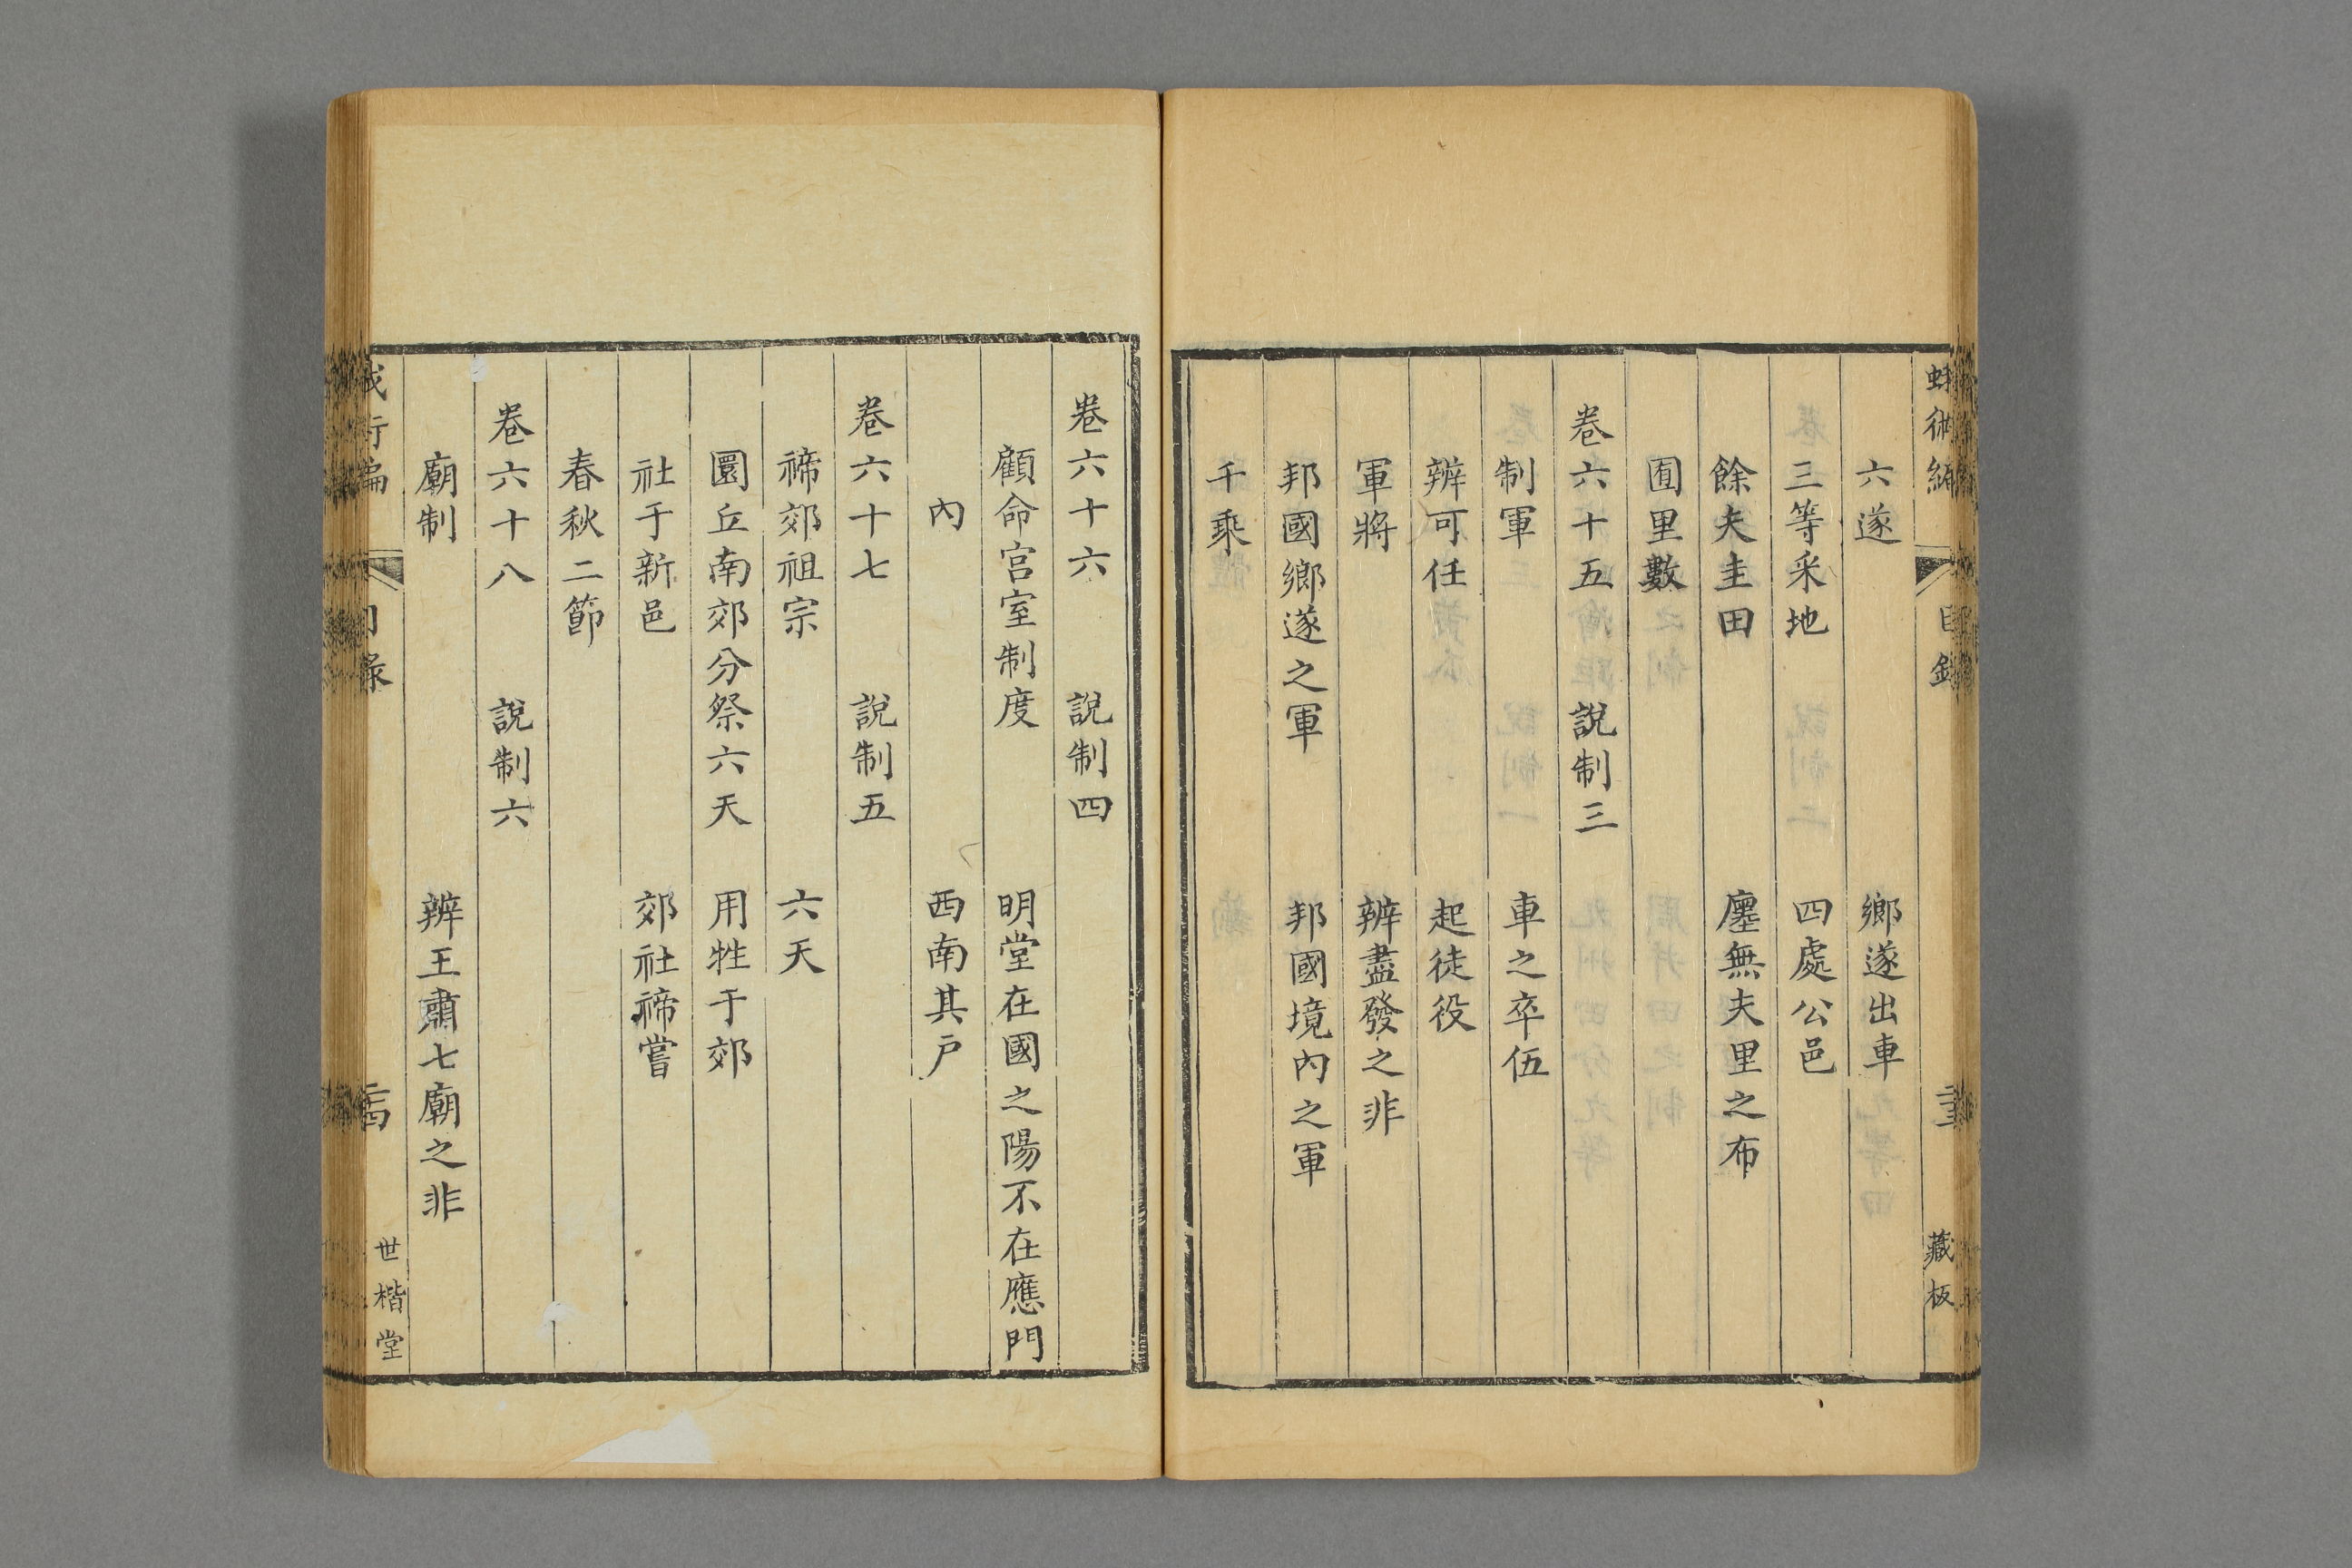 六遂　鄉遂出車
三等采地　四處公邑
餘夫圭田　廛無夫里之布
囿里數
卷六十五　說制三
制軍　車之卒伍
辨可任　起徒役
軍將　辨盡發之非
邦國鄉遂之軍　邦國境內之軍
千乘
藏板
卷六十六　說制四
顧命宮室制度　明堂在國之陽不在應門
內　西南其戶
卷六十七　說制五
禘郊祖宗　六天
圜丘南郊分祭六天　用牲于郊
社于新邑　郊社禘嘗
春秋二節
卷六十八　說制六
廟制　辨王肅七廟之非
世楷堂